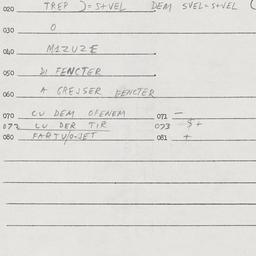 020 TREP )=S+VEL DEM SVEL=S+VEL (
030 O
040 MIZUZE
050 DI FENCTER
060 A GREJSER FENCTER
070 CU DEM OFENEM 071 —
072 CU DER TIR 073 -$+
080 FARTU/O-JET 081 +